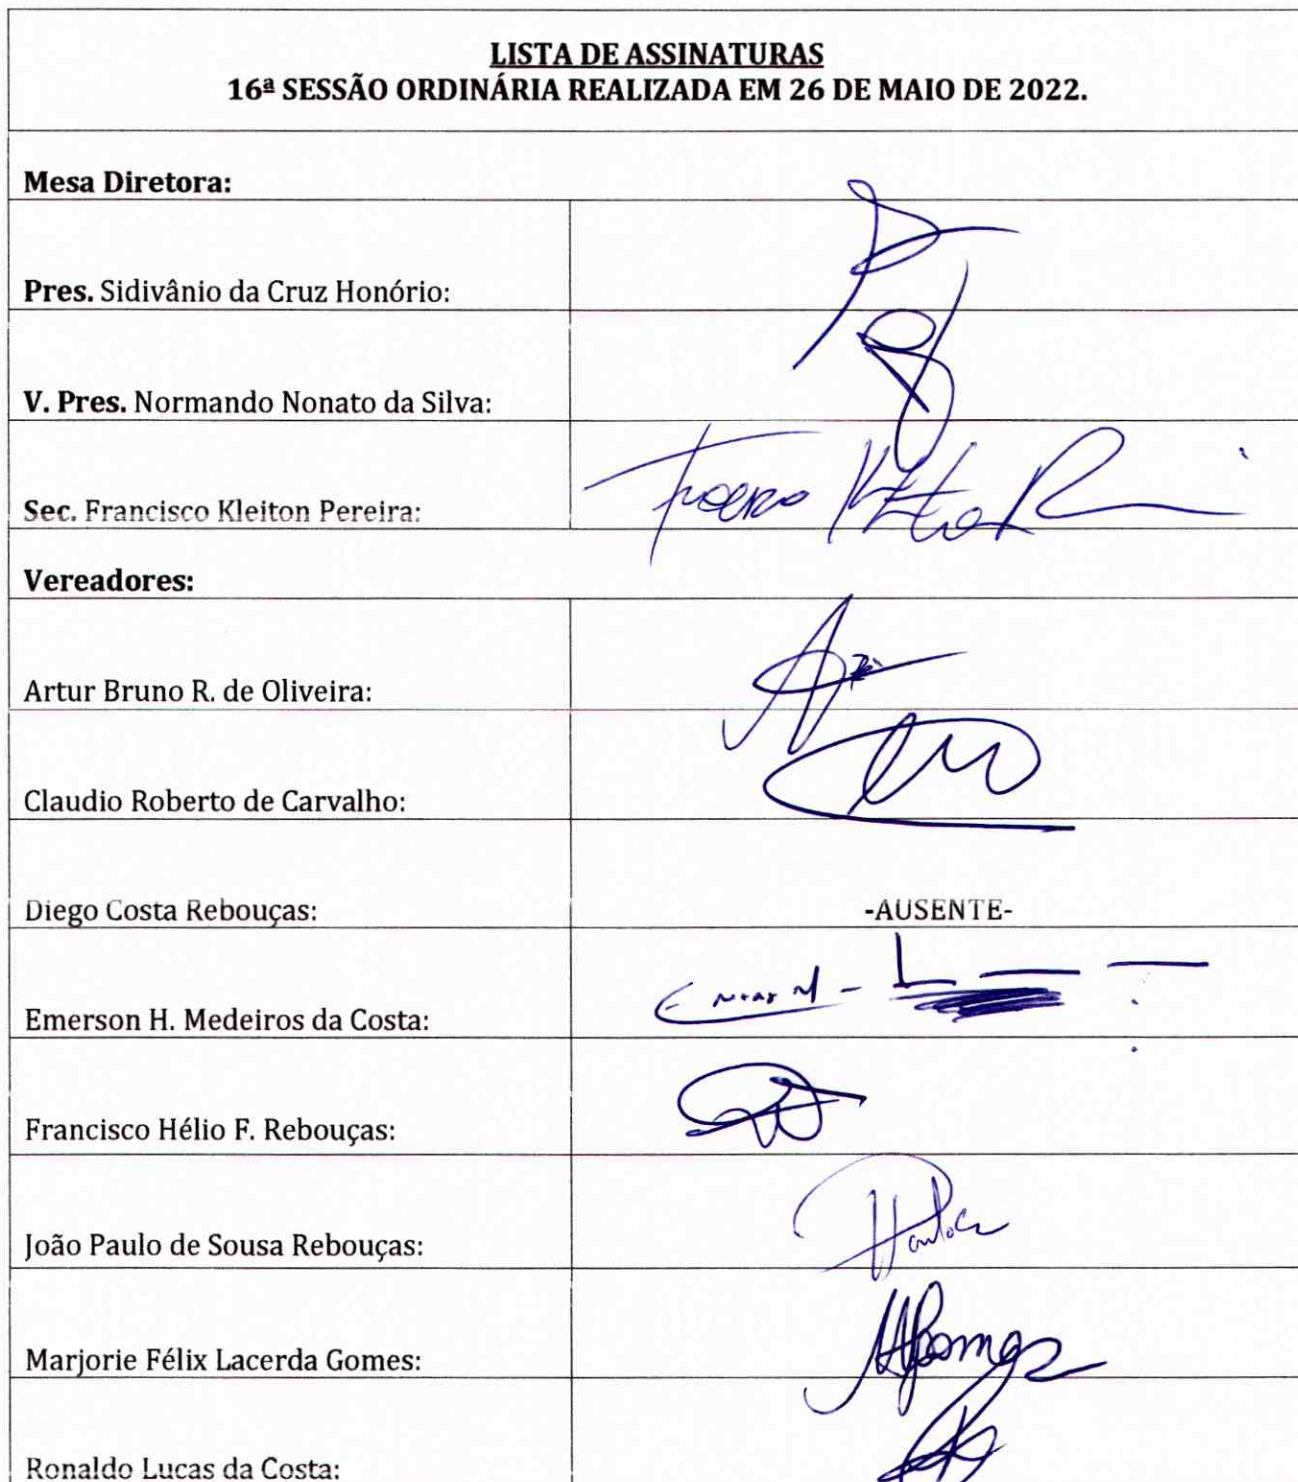 LISTA DE ASSINATURAS
16ª SESSÃO ORDINÁRIA REALIZADA EM 26 DE MAIO DE 2022.
Mesa Diretora:
Pres. Sidivânio da Cruz Honório:
V. Pres. Normando Nonato da Silva:
Sec. Francisco Kleiton Pereira:
Vereadores:
Artur Bruno R. de Oliveira:
Claudio Roberto de Carvalho:
Diego Costa Rebouças: -AUSENTE-
Emerson H. Medeiros da Costa:
Francisco Hélio F. Rebouças:
João Paulo de Sousa Rebouças:
Marjorie Félix Lacerda Gomes:
Ronaldo Lucas da Costa: